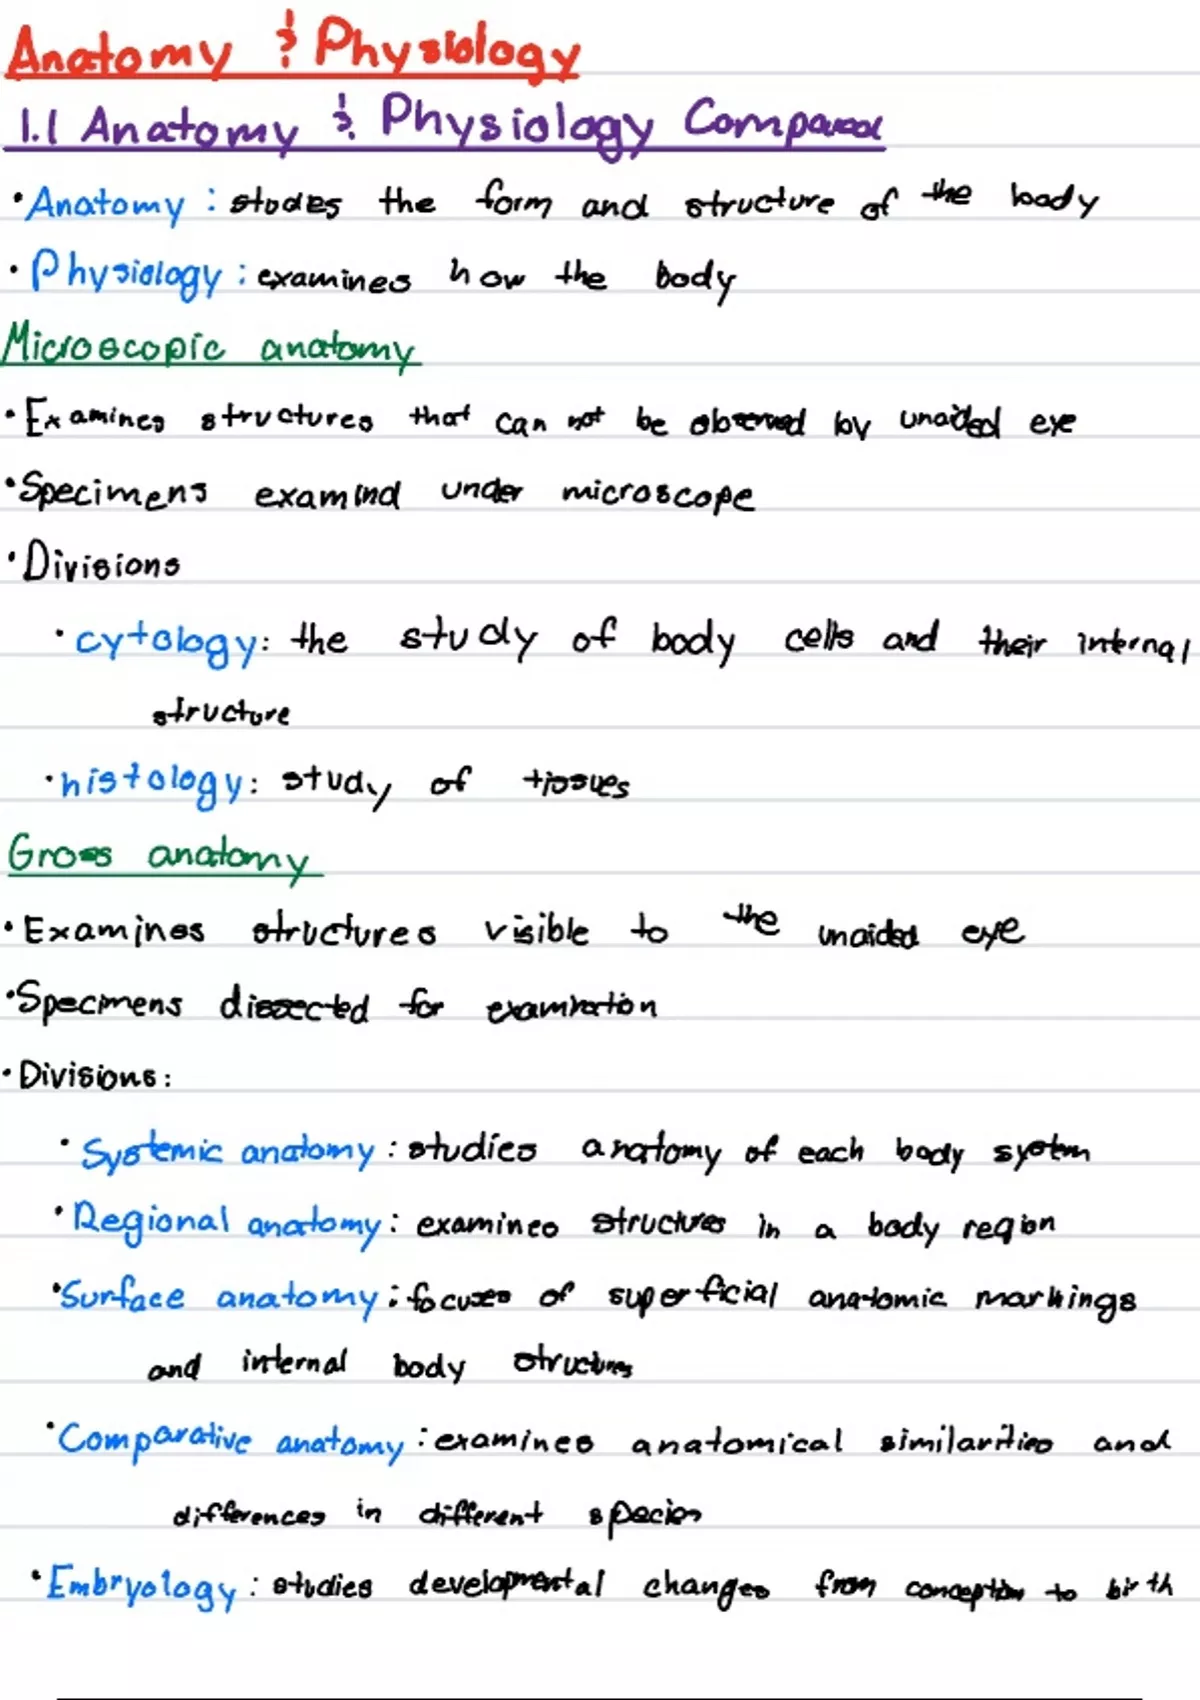 Anatomy & Physiology
1.1 Anatomy & Physiology Compared
• Anatomy : studies the form and structure of the body
• Physiology : examines how the body
Microscopic anatomy
• Examines structures that can not be observed by unaided eye
• Specimens examind under microscope
• Divisions
• cytology: the study of body cells and their internal
structure
• histology: study of tissues
Gross anatomy
• Examines structures visible to the unaided eye
• Specimens dissected for examination
• Divisions:
• Systemic anatomy : studies anatomy of each body system
• Regional anatomy : examines structures in a body region
• Surface anatomy : focuses of superficial anatomic markings
and internal body structures
• Comparative anatomy : examines anatomical similarities and
differences in different species
• Embryology : studies developmental changes from conception to birth